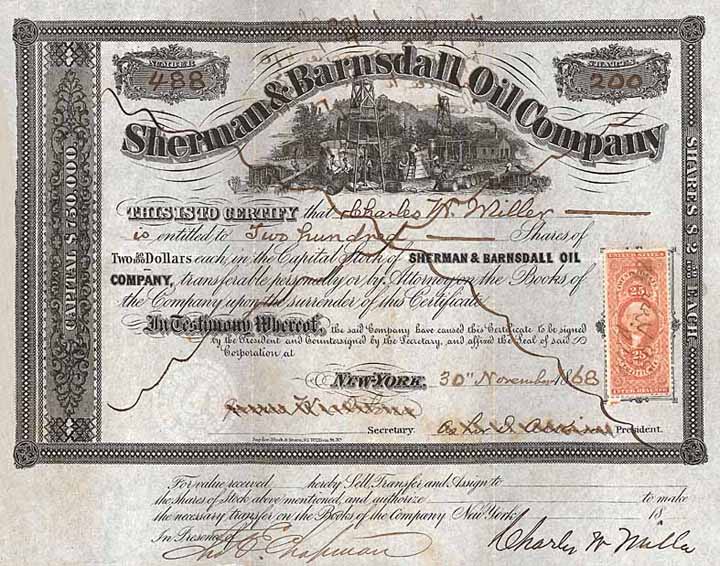 NUMBER
488
SHARES
200
Sherman & Barnsdall Oil Company
CAPITAL $750,000
SHARES $2 50/100 EACH.
THIS IS TO CERTIFY that Charles W. Miller
is entitled to Two hundred Shares of
Two 50/100 Dollars each, in the Capital Stock of SHERMAN & BARNSDALL OIL
COMPANY, transferable personally or by Attorney on the Books of
the Company upon the surrender of this Certificate
In Testimony Whereof, the said Company have caused this Certificate to be signed
by the President and Countersigned by the Secretary, and affixed the Seal of said
Corporation at
NEW-YORK, 30th November 1868
Secretary. President.
25 25
For value received hereby Sell, Transfer and Assign to
the shares of Stock above mentioned, and authorize to make
the necessary transfer on the Books of the Company New York 18
In Presence of
Chapman
Charles W Miller